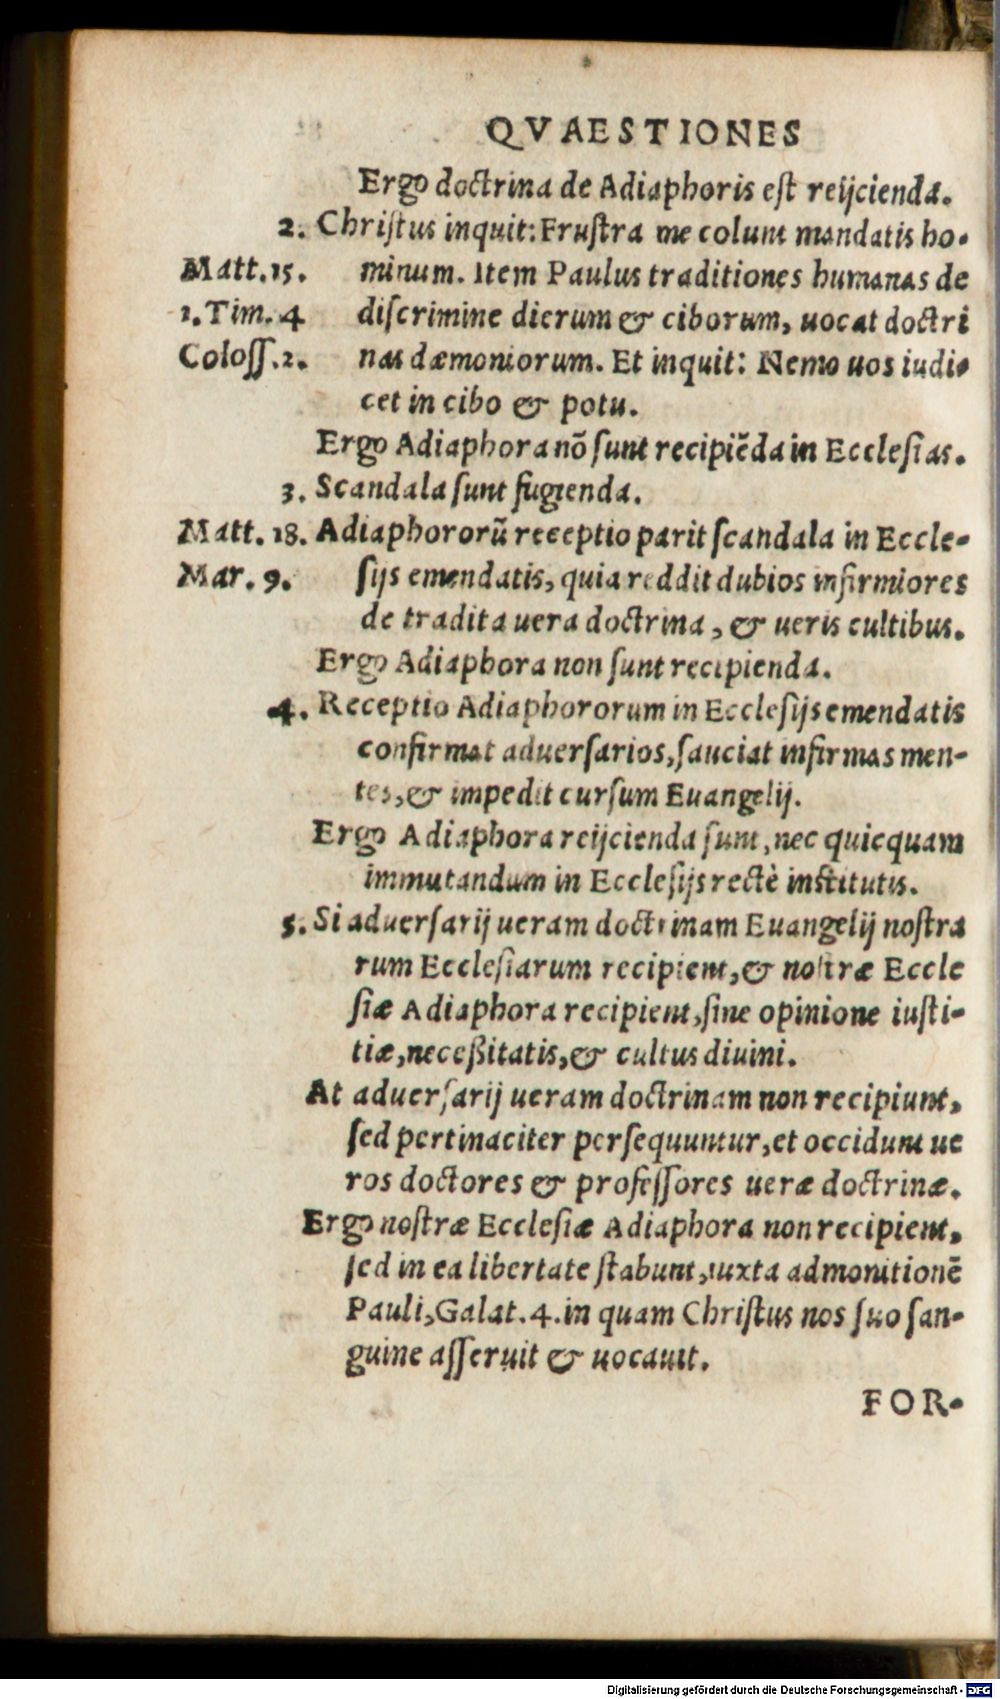 QVAESTIONES
Ergo doctrina de Adiaphoris est reijcienda.
2. Christus inquit: Frustra me colunt mandatis ho-
Matt. 15. minum. Item Paulus traditiones humanas de
1. Tim. 4 discrimine dierum & ciborum, uocat doctri
Coloss. 2. nas dæmoniorum. Et inquit: Nemo uos iudi-
cet in cibo & potu.
Ergo Adiaphora nõ sunt recipiẽda in Ecclesias.
3. Scandala sunt fugienda.
Matt. 18. Adiaphororũ receptio parit scandala in Eccle-
Mar. 9. sijs emendatis, quia reddit dubios infirmiores
de tradita uera doctrina, & ueris cultibus.
Ergo Adiaphora non sunt recipienda.
4. Receptio Adiaphororum in Ecclesijs emendatis
confirmat aduersarios, sauciat infirmas men-
tes, & impedit cursum Euangelij.
Ergo Adiaphora reijcienda sunt, nec quicquam
immutandum in Ecclesijs rectè institutis.
5. Si aduersarij ueram doctrinam Euangelij nostra
rum Ecclesiarum recipient, & nostræ Eccle
siæ Adiaphora recipient, sine opinione iusti-
tiæ, neceßitatis, & cultus diuini.
At aduersarij ueram doctrinam non recipiunt,
sed pertinaciter persequuntur, et occidunt ue
ros doctores & professores ueræ doctrinæ.
Ergo nostræ Ecclesiæ Adiaphora non recipient,
sed in ea libertate stabunt, iuxta admonitionẽ
Pauli, Galat. 4. in quam Christus nos suo san-
guine asseruit & uocauit.
FOR-
Digitalisierung gefördert durch die Deutsche Forschungsgemeinschaft - DFG